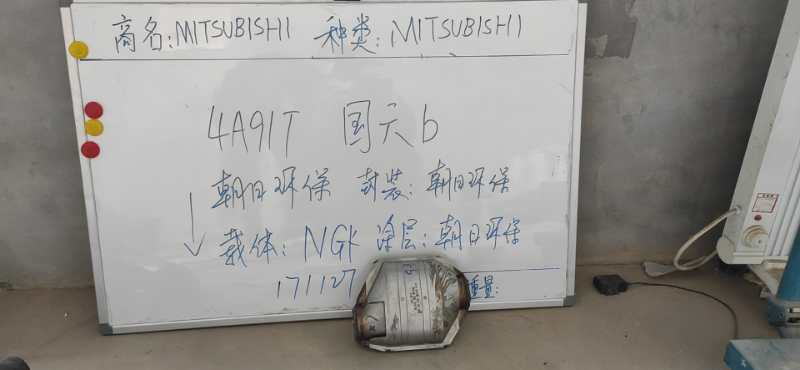 商名:MITSUBISHI 种类:MITSUBISHI
4A91T 国六b
朝日环保 封装:朝日环保
载体:NGK 涂层:朝日环保
171127 重量: